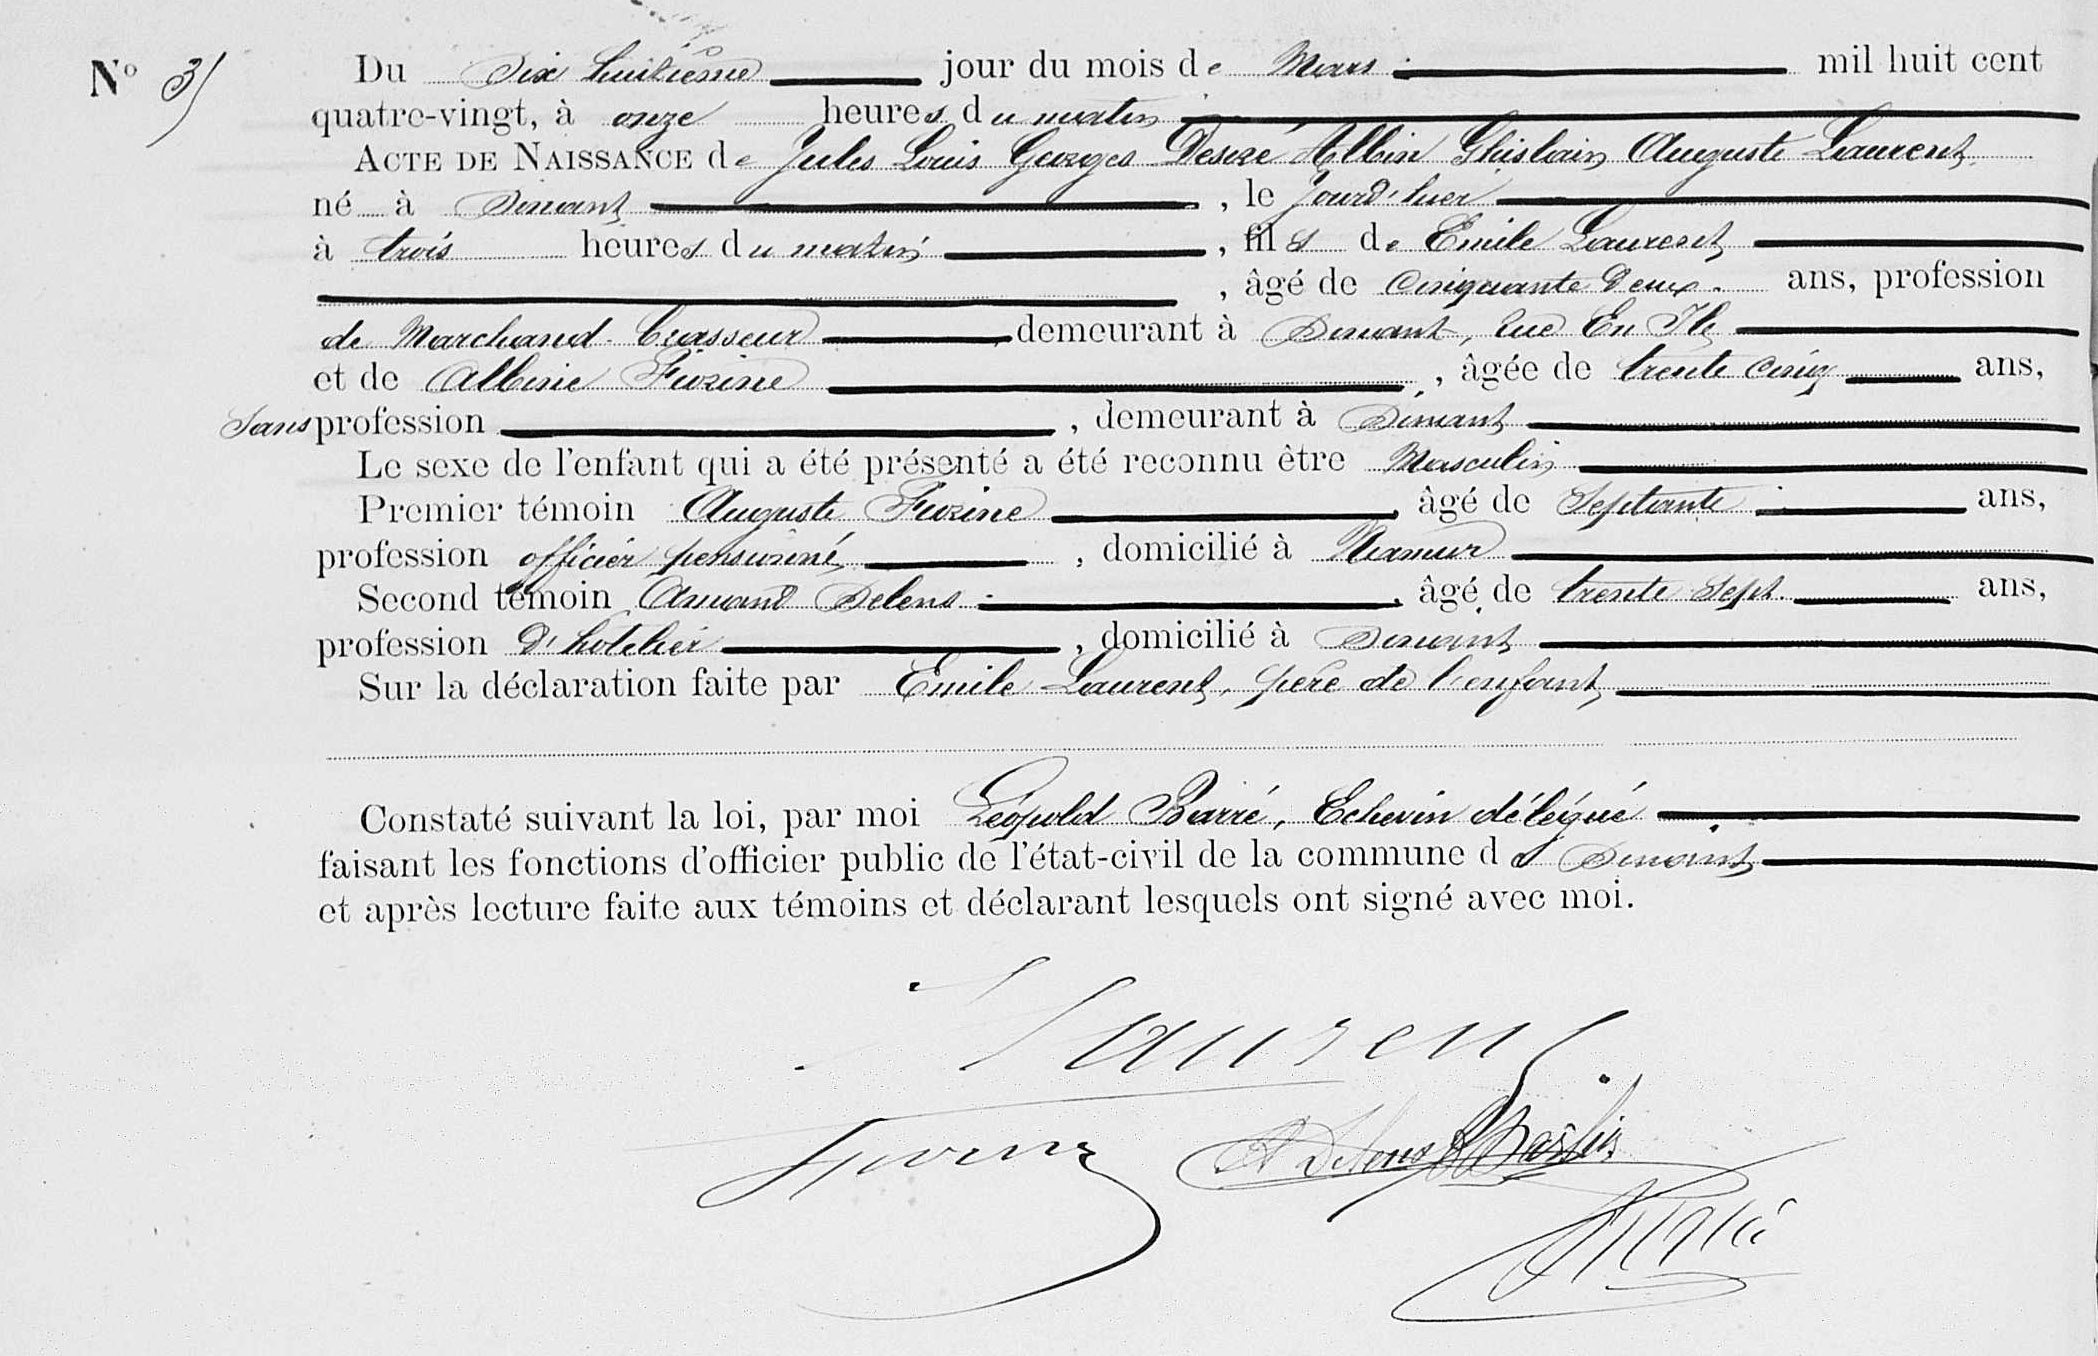 N° 31
Du Dix huitième jour du mois de Mars mil huit cent
quatre-vingt, à onze heures du matin
ACTE DE NAISSANCE de Jules Louis Georges Desiré Albin Ghislain Auguste Laurent
né à Dinant, le Jourd'huer
à trois heures du matin, fils de Emile Laurent
, âgé de Cinquante Deux ans, profession
de Marchand-brasseur demeurant à Dinant, rue En Ile
et de Albinie Fivrine, âgée de trente cinq ans,
Sans profession, demeurant à Dinant
Le sexe de l'enfant qui a été présenté a été reconnu être Masculin
Premier témoin Auguste, âgé de Septante ans,
profession officier pensionné, domicilié à Namur
Second témoin Amand Delens, âgé de trente sept ans,
profession D'hotelier, domicilié à Dinant
Sur la déclaration faite par Emile Laurent, père de l'enfant
Constaté suivant la loi, par moi Léopold Barré, Echevin délégué
faisant les fonctions d'officier public de l'état-civil de la commune de Dinant
et après lecture faite aux témoins et déclarant lesquels ont signé avec moi.
Laurent
A Delens